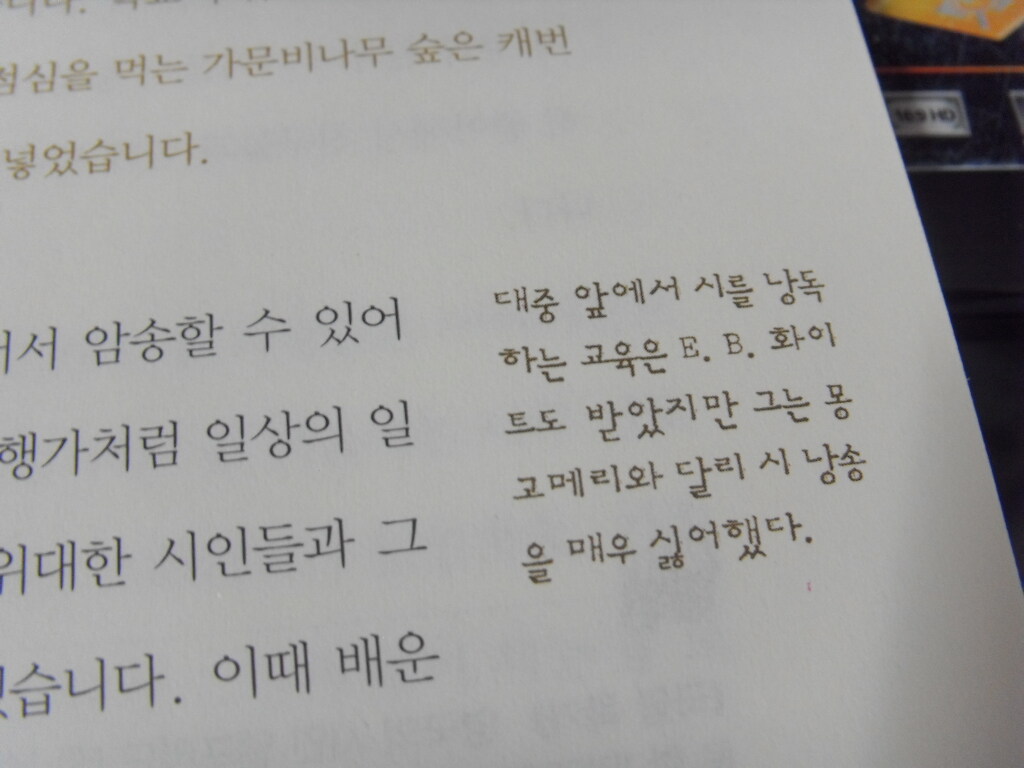 점심을 먹는 가문비나무 숲은 캐번
넣었습니다.
암송할 수 있어
행가처럼 일상의 일
위대한 시인들과 그
이때 배운
대중 앞에서 시를 낭독
하는 교육은 E. B. 화이
트도 받았지만 그는 몽
고메리와 달리 시 낭송
을 매우 싫어했다.
169 HD